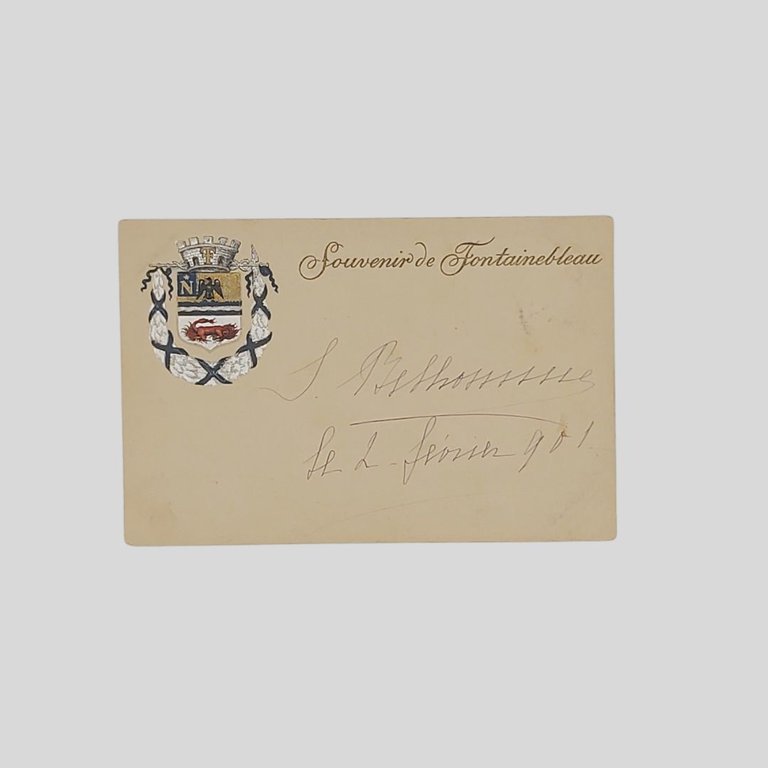 Souvenir de Fontainebleau
N
S. Belhomme
Le 2 février 901